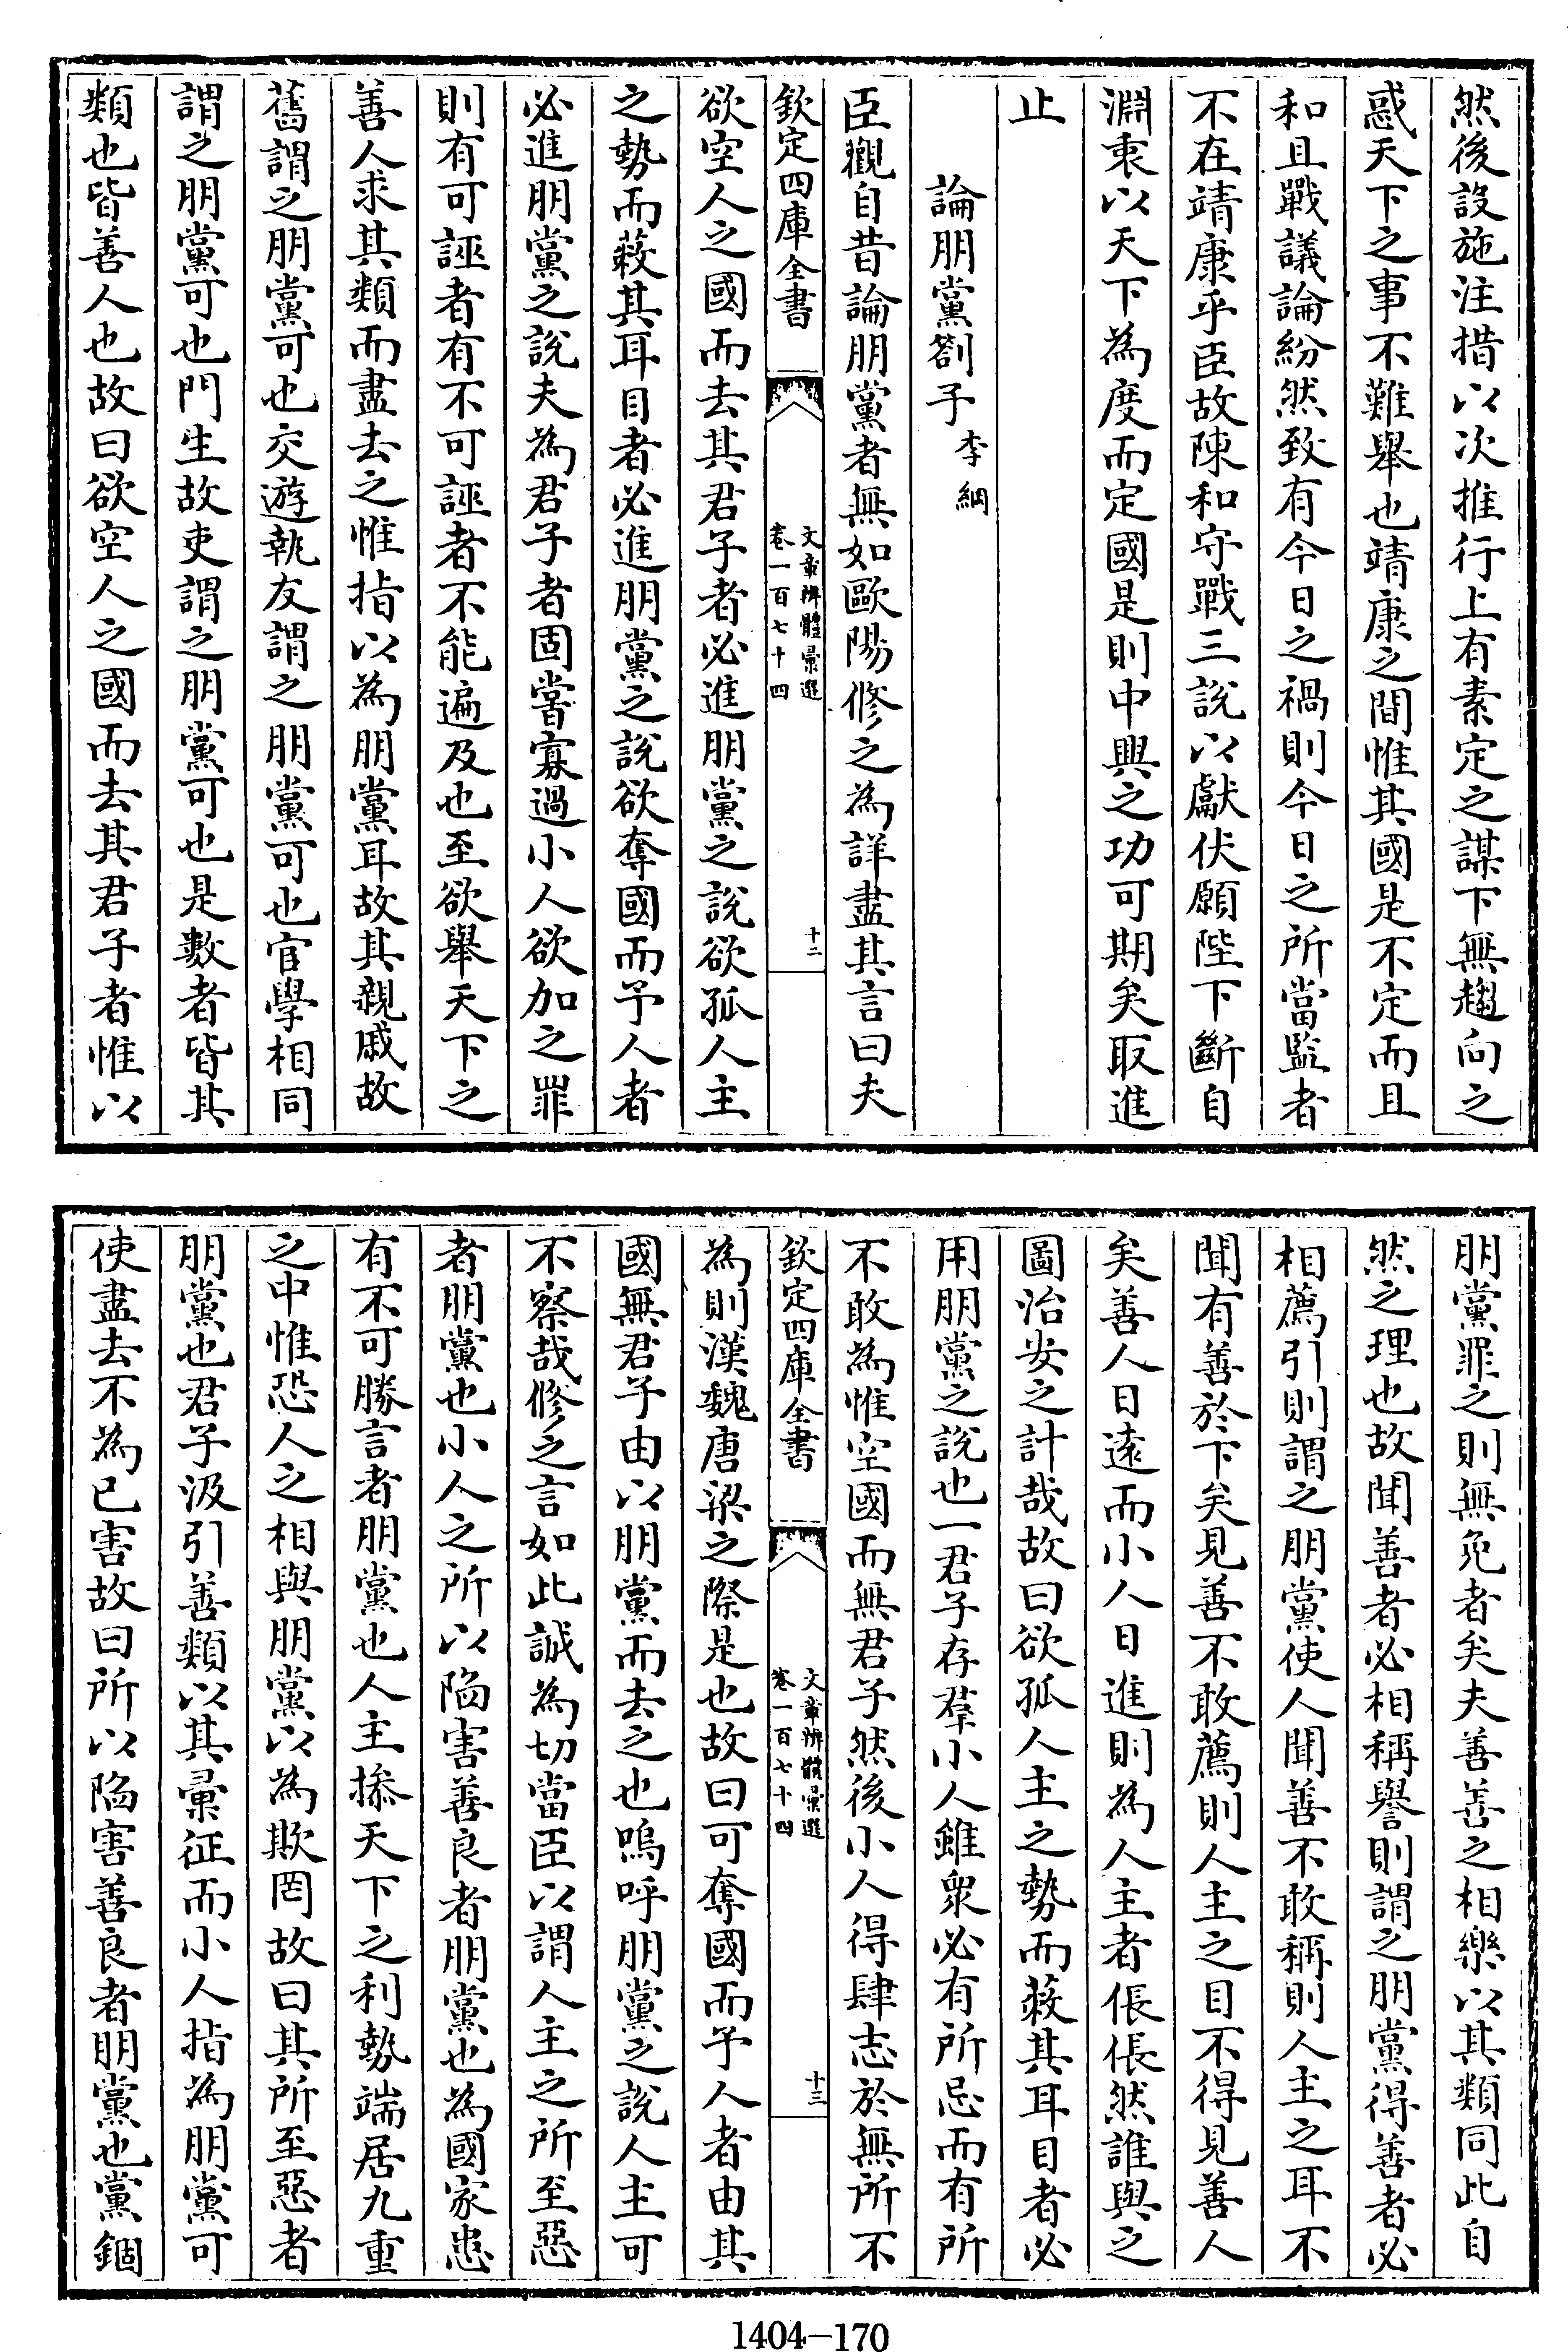 然後設施注措以次推行上有素定之謀下無趨向之
惑天下之事不難舉也靖康之間惟其國是不定而且
和且戰議論紛然致有今日之禍則今日之所當監者
不在靖康乎臣故陳和守戰三說以獻伏願陛下斷自
淵衷以天下為度而定國是則中興之功可期矣取進
止
論朋黨劄子李綱
臣觀自昔論朋黨者無如歐陽修之為詳盡其言曰夫
欽定四庫全書
文章辨體彚選
卷一百七十四
十二
欲空人之國而去其君子者必進朋黨之說欲孤人主
之勢而蔽其耳目者必進朋黨之說欲奪國而予人者
必進朋黨之說夫為君子者固嘗寡過小人欲加之罪
則有可誣者有不可誣者不能遍及也至欲舉天下之
善人求其類而盡去之惟指以為朋黨耳故其親戚故
舊謂之朋黨可也交遊執友謂之朋黨可也官學相同
謂之朋黨可也門生故吏謂之朋黨可也是數者皆其
類也皆善人也故曰欲空人之國而去其君子者惟以
朋黨罪之則無免者矣夫善善之相樂以其類同此自
然之理也故聞善者必相稱譽則謂之朋黨得善者必
相薦引則謂之朋黨使人聞善不敢稱則人主之耳不
聞有善於下矣見善不敢薦則人主之目不得見善人
矣善人日遠而小人日進則為人主者倀倀然誰與之
圖治安之計哉故曰欲孤人主之勢而蔽其耳目者必
用朋黨之說也一君子存羣小人雖衆必有所忌而有所
不敢為惟空國而無君子然後小人得肆志於無所不
欽定四庫全書
文章辨體彚選
卷一百七十四
十三
為則漢魏唐梁之際是也故曰可奪國而予人者由其
國無君子由以朋黨而去之也嗚呼朋黨之說人主可
不察哉修之言如此誠為切當臣以謂人主之所至惡
者朋黨也小人之所以陷害善良者朋黨也為國家患
有不可勝言者朋黨也人主操天下之利勢端居九重
之中惟恐人之相與朋黨以為欺罔故曰其所至惡者
朋黨也君子汲引善類以其彙征而小人指為朋黨可
使盡去不為已害故曰所以陷害善良者朋黨也黨錮
1404-170